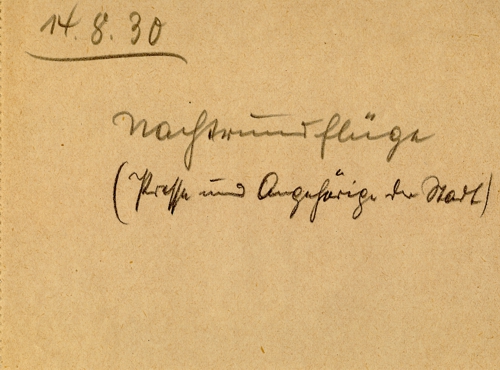 14. 8. 30
Nachtrundflüge
(Presse und Angehörige der Stadt)